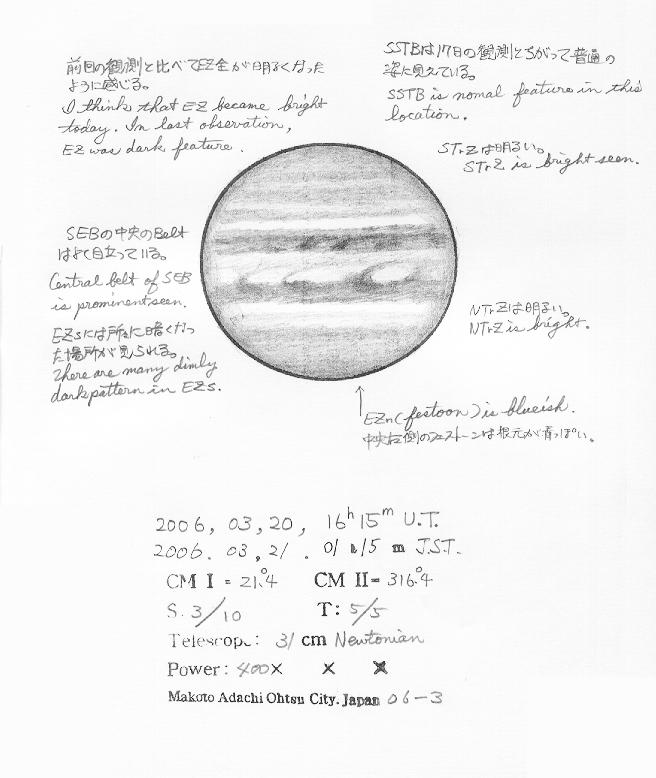 前回の観測と比べてEZ全が明るくなった
ように感じる。
I think that EZ became bright
today. In last observation,
EZ was dark feature.
SSTBは17日の観測とちがって普通の
姿に見えている。
SSTB is nomal feature in this
location.
STrZは明るい。
STrZ is bright seen.
SEBの中央のBelt
はよく目立っている。
Central belt of SEB
is prominent seen.
EZsには所々に暗くなっ
た場所が見られる。
There are many dimly
dark pattern in EZs.
NTrZは明るい。
NTrZ is bright.
EZn(festoon) is blueish.
中央左側のフェストーンは根元が青っぽい。
2006, 03, 20, 16h 15m U.T.
2006. 03, 21. 01 h 15 m J.S.T.
CM I = 21.°4 CM II= 316.°4
S. 3/10 T: 5/5
Telescope: 31 cm Newtonian
Power: 400× × ×
Makoto Adachi Ohtsu City. Japan 06-3